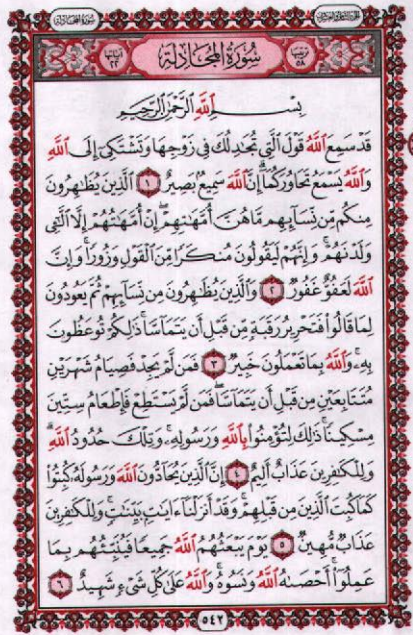 سُورَةُ المُجَادلَة
ترتيبها ٥٨
سُورَةُ المُجَادلَة
آياتها ٢٢
بِسْمِ اللَّهِ الرَّحْمَٰنِ الرَّحِيمِ
قَدْ سَمِعَ اللَّهُ قَوْلَ الَّتِي تُجَٰدِلُكَ فِي زَوْجِهَا وَتَشْتَكِي إِلَى اللَّهِ
وَاللَّهُ يَسْمَعُ تَحَاوُرَكُمَا إِنَّ اللَّهَ سَمِيعٌ بَصِيرٌ ١ الَّذِينَ يُظَٰهِرُونَ
مِنكُم مِّن نِّسَآئِهِم مَّا هُنَّ أُمَّهَٰتِهِمْ إِنْ أُمَّهَٰتُهُمْ إِلَّا الَّٰٓـِٔي
وَلَدْنَهُمْ وَإِنَّهُمْ لَيَقُولُونَ مُنكَرًا مِّنَ الْقَوْلِ وَزُورًا وَإِنَّ
اللَّهَ لَعَفُوٌّ غَفُورٌ ٢ وَالَّذِينَ يُظَٰهِرُونَ مِن نِّسَآئِهِمْ ثُمَّ يَعُودُونَ
لِمَا قَالُوا فَتَحْرِيرُ رَقَبَةٍ مِّن قَبْلِ أَن يَتَمَآسَّا ذَٰلِكُمْ تُوعَظُونَ
بِهِۦ وَاللَّهُ بِمَا تَعْمَلُونَ خَبِيرٌ ٣ فَمَن لَّمْ يَجِدْ فَصِيَامُ شَهْرَيْنِ
مُتَتَابِعَيْنِ مِن قَبْلِ أَن يَتَمَآسَّا فَمَن لَّمْ يَسْتَطِعْ فَإِطْعَامُ سِتِّينَ
مِسْكِينًا ذَٰلِكَ لِتُؤْمِنُوا بِاللَّهِ وَرَسُولِهِۦ وَتِلْكَ حُدُودُ اللَّهِ
وَلِلْكَٰفِرِينَ عَذَابٌ أَلِيمٌ ٤ إِنَّ الَّذِينَ يُحَآدُّونَ اللَّهَ وَرَسُولَهُۥ كُبِتُوا
كَمَا كُبِتَ الَّذِينَ مِن قَبْلِهِمْ وَقَدْ أَنزَلْنَآ ءَايَٰتٍۭ بَيِّنَٰتٍ وَلِلْكَٰفِرِينَ
عَذَابٌ مُّهِينٌ ٥ يَوْمَ يَبْعَثُهُمُ اللَّهُ جَمِيعًا فَيُنَبِّئُهُم بِمَا
عَمِلُوٓا أَحْصَىٰهُ اللَّهُ وَنَسُوهُ وَاللَّهُ عَلَىٰ كُلِّ شَيْءٍ شَهِيدٌ ٦
٥٤٢